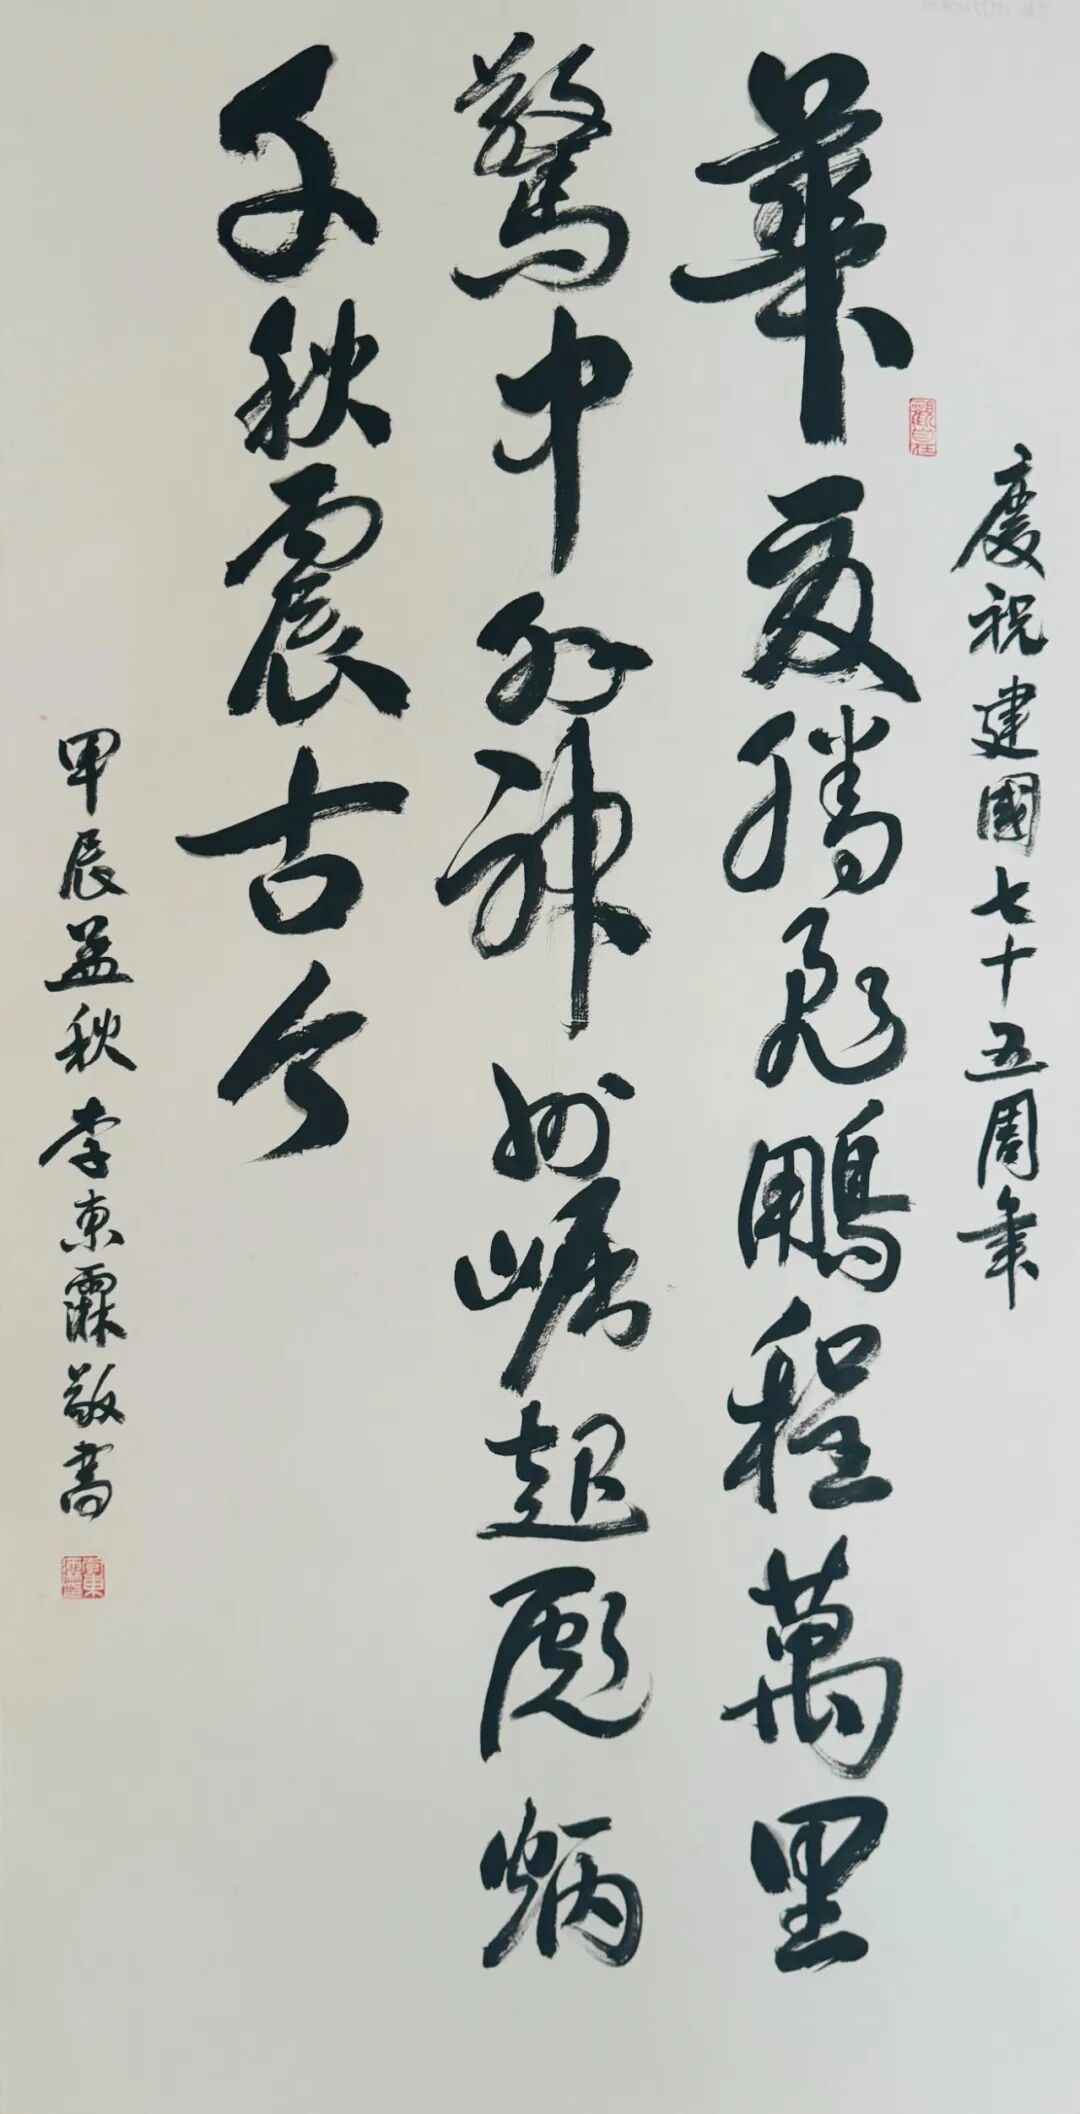 慶祝建國七十五周年
觀自在
華夏騰飛鵬程萬里
驚中外神州崛起彪炳
千秋震古今
甲辰孟秋李東霖敬書